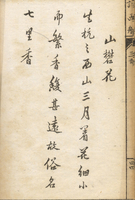 山礬花
生杭之西山三月着花細小
而繁香馥甚遠故俗名
七里香